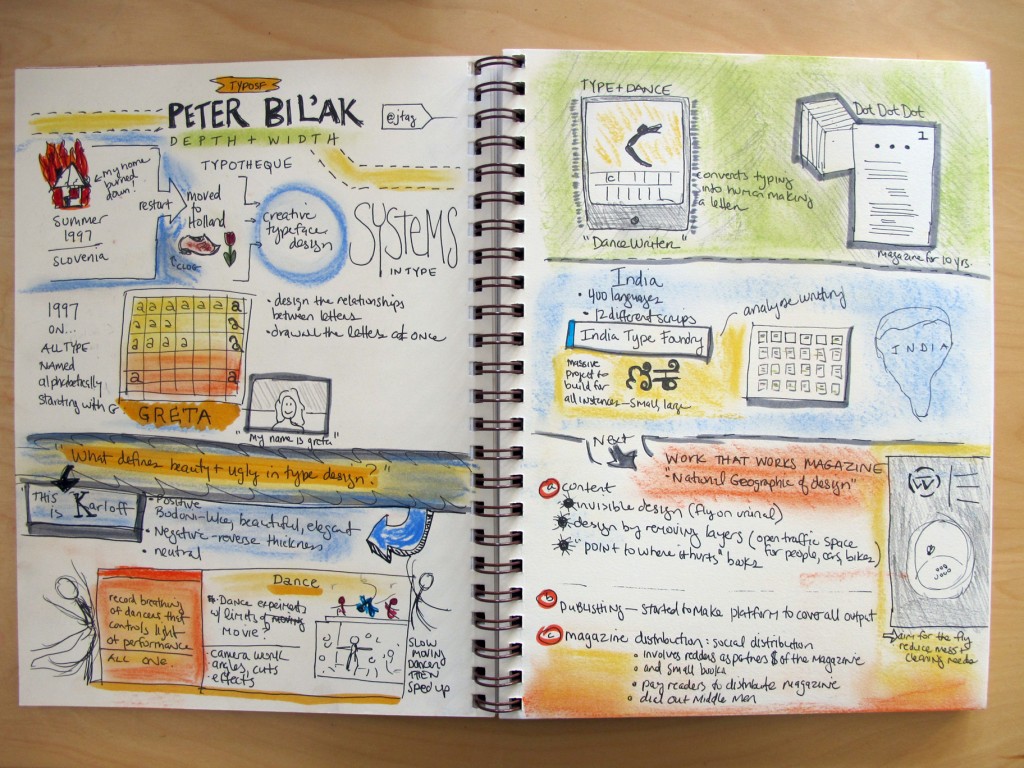 TYPOSF
PETER BIL'AK
DEPTH + WIDTH
@jtag
my home
burned
down!
restart
SUMMER
1997
SLOVENIA
TYPOTHEQUE
moved
to
Holland
CLOG
creative
typeface
design
SYSTEMS
IN TYPE
1997
ON...
ALL TYPE
NAMED
alphabetically
starting with G
a a a a a a a
a a a a
a a a a a
a a
GRETA
• design the relationships
between letters
• draw all the letters at once
"My name is greta"
"What defines beauty + ugly in type design?"
"THIS
IS Karloff
• Positive
Bodoni-like, beautiful, elegant
• Negative - reverse thickness
• neutral
record breathing
of dancers that
controls light
of performance
ALL ONE.
Dance
Dance experiments
w/ limits of moving
MOVIE?
camera work
angles, cuts
effects
SLOW
MOVING
DANCERS
THEN
SPED UP
TYPE + DANCE
"Dance Writer"
converts typing
into human making
a letter
Dot Dot Dot
1
magazine for 10 yrs.
India
• 400 languages
• 12 different scrips
India Type Foundry
MASSIVE
PROJECT TO
BUILD FOR
all instances - small, large
analyze writing
INDIA
Next
WORK THAT WORKS MAGAZINE
"National Geographic of design"
W
a content
invisible design (fly on urinal)
design by removing layers (open traffic space
for people, cars, bikes)
"point to where it hurts" books
b publisting — started to make platform to cover all output
c magazine distribution: social distribution
• involves readers as partners of the magazine
• and small books
• pay readers to distribute magazine
• dial out middle men
aim for the fly
reduce mess +
cleaning needs